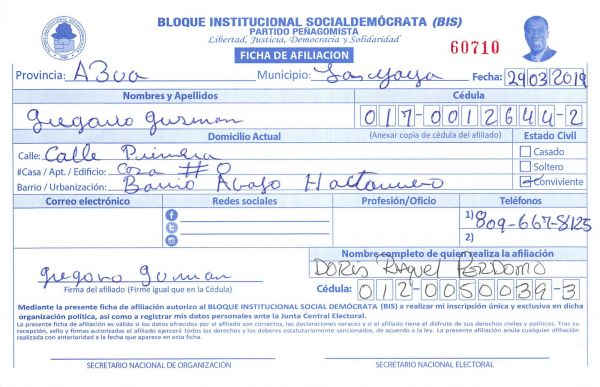 BLOQUE INSTITUCIONAL SOCIALDEMÓCRATA (BIS)
PARTIDO PEÑAGOMISTA
Libertad, Justicia, Democracia y Solidaridad
FICHA DE AFILIACION
60710
Provincia: A3ua Municipio: Fecha: 29032019
Nombres y Apellidos Cédula
Gregorio Guzman 017-0012644-2
Domicilio Actual (Anexar copia de cédula del afiliado) Estado Civil
Calle: Calle Primera Casado
#Casa / Apt. / Edificio: Casa # 0 Soltero
Barrio / Urbanización: Barrio Abajo Conviviente
Correo electrónico Redes sociales Profesión/Oficio Teléfonos
1) 809-667-8125
2)
Nombre completo de quien realiza la afiliación
gregorio guzman DORIS RAQUEL PERDOMO
Firma del afiliado (Firme igual que en la Cédula) Cédula: 012-0050039-3
Mediante la presente ficha de afiliación autorizo al BLOQUE INSTITUCIONAL SOCIAL DEMÓCRATA (BIS) a realizar mi inscripción única y exclusiva en dicha
organización política, así como a registrar mis datos personales ante la Junta Central Electoral.
La presente ficha de afiliación es válida si los datos ofrecidos por el afiliado son correctos, las declaraciones veraces y si el afiliado tiene el disfrute de sus derechos civiles y políticos. Tras su
recepción, sello y firmas autorizadas el afiliado ejercerá todos los derechos y los deberes estatutariamente sancionados, de acuerdo a la ley. La presente afiliación anula cualquier afiliación
realizada con anterioridad a la fecha que aparece en esta ficha.
SECRETARIO NACIONAL DE ORGANIZACIÓN SECRETARIO NACIONAL ELECTORAL